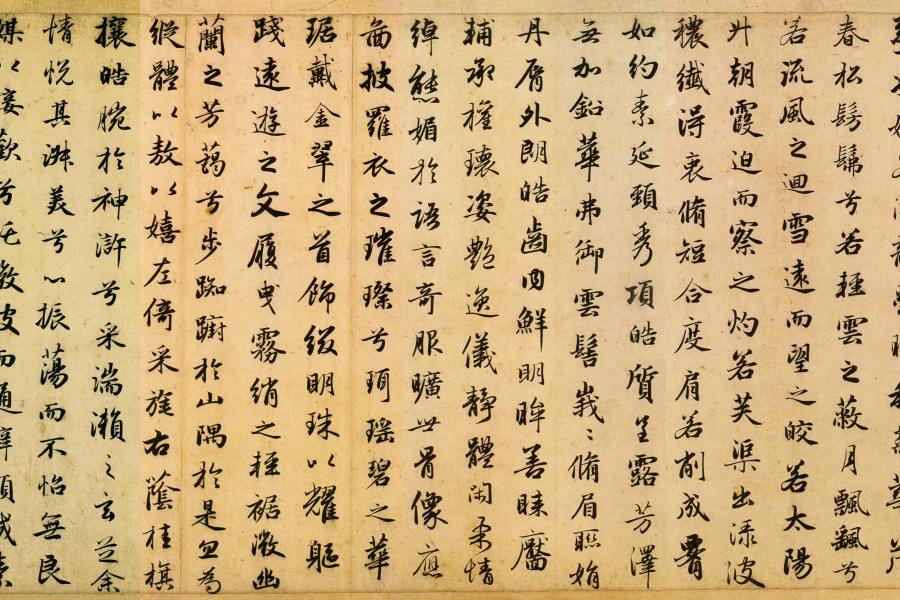 春松髣髴兮若輕雲之蔽月飄飖兮
若流風之迴雪遠而望之皎若太陽
升朝霞迫而察之灼若芙渠出淥波
穠纖得衷脩短合度肩若削成𦝫
如約素延頸秀項皓質呈露芳澤
無加鉛華弗御雲髻峩〻脩眉聯娟
丹脣外朗皓齒內鮮明眸善睞靨
輔承權瓌姿艷逸儀靜體閑柔情
綽態媚於語言奇服曠世骨像應
啚披羅衣之璀璨兮珥瑶碧之華
琚戴金翠之首飾綴明珠以耀軀
踐遠遊之文履曳霧綃之輕裾微幽
蘭之芳藹兮步踟躕於山隅於是忽焉
縱體以敖以嬉左倚采旄右蔭桂旗
攘皓腕於神滸兮采湍瀨之玄芝余
情悅其淑美兮心振蕩而不怡無良
媒以接歡兮託微波而通辭願誠素